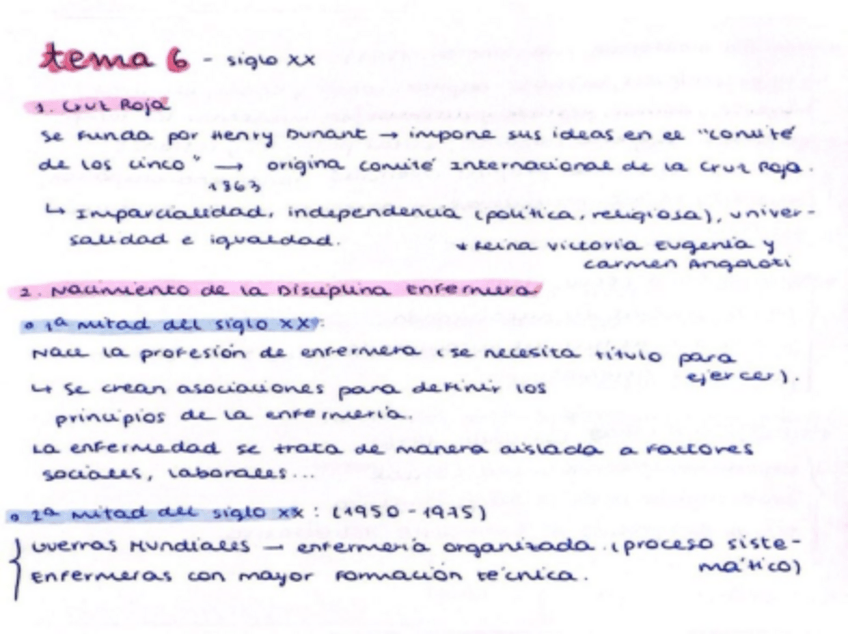 tema 6 - siglo XX
1. Cruz Roja
Se funda por Henry Dunant → impone sus ideas en el "comité
de los cinco" → origina Comité Internacional de la Cruz Roja.
1863
↳ Imparcialidad, independencia (política, religiosa), univer-
salidad e igualdad.
+ Reina Victoria Eugenia y
Carmen Angoloti
2. Nacimiento de la Disciplina Enfermera
• 1ª mitad del siglo XX:
Nace la profesión de enfermera (se necesita título para
ejercer).
↳ Se crean asociaciones para definir los
principios de la enfermería.
La enfermedad se trata de manera aislada a factores
sociales, laborales...
• 2ª mitad del siglo XX: (1950-1975)
Guerras Mundiales — enfermería organizada. (proceso siste-
mático)
Enfermeras con mayor formación técnica.